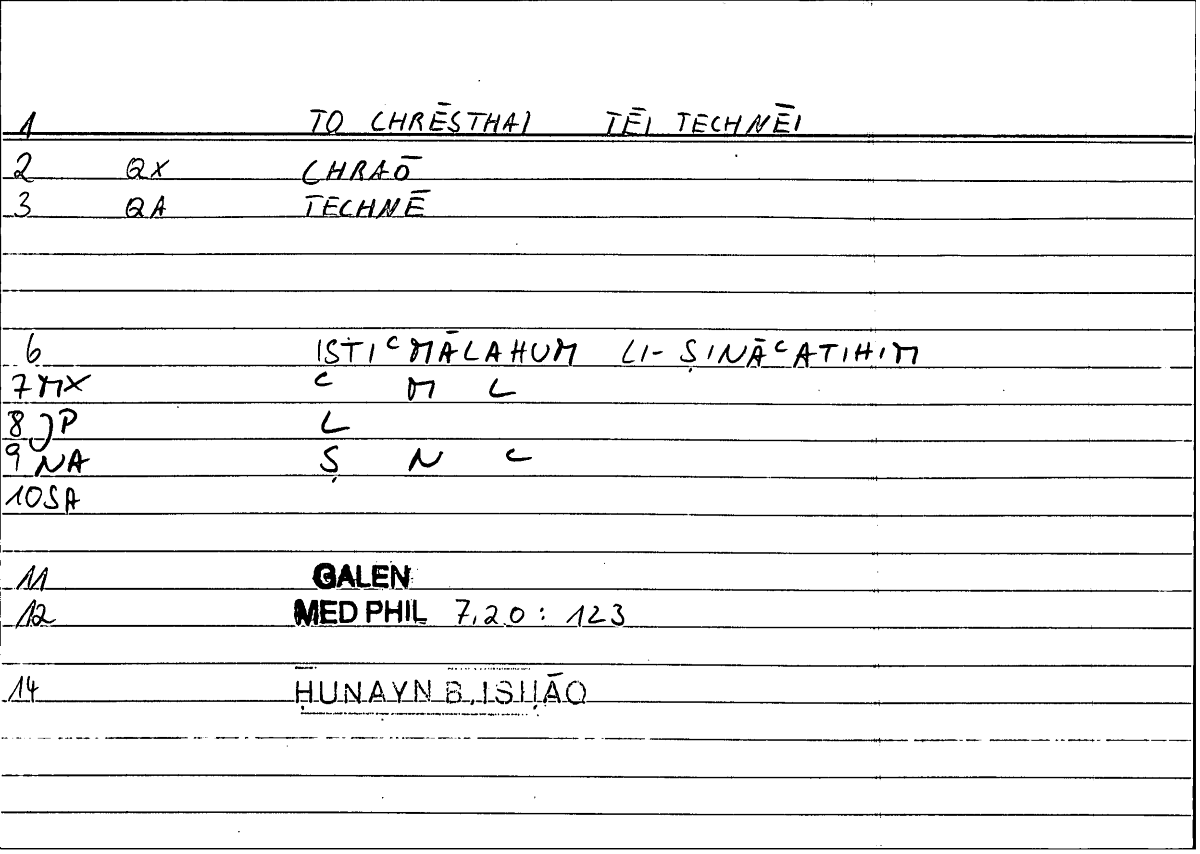 1 TO CHRĒSTHAI TĒI TECHNĒI
2 QX CHRAŌ
3 QA TECHNĒ
6 ISTIᶜMĀLAHUM LI- ṢINĀᶜATIHIM
7 MX ᶜ M L
8 JP L
9 NA Ṣ N ᶜ
10 SA
11 GALEN
12 MED PHIL 7,20 : 123
14 ḤUNAYN B. ISḤĀQ